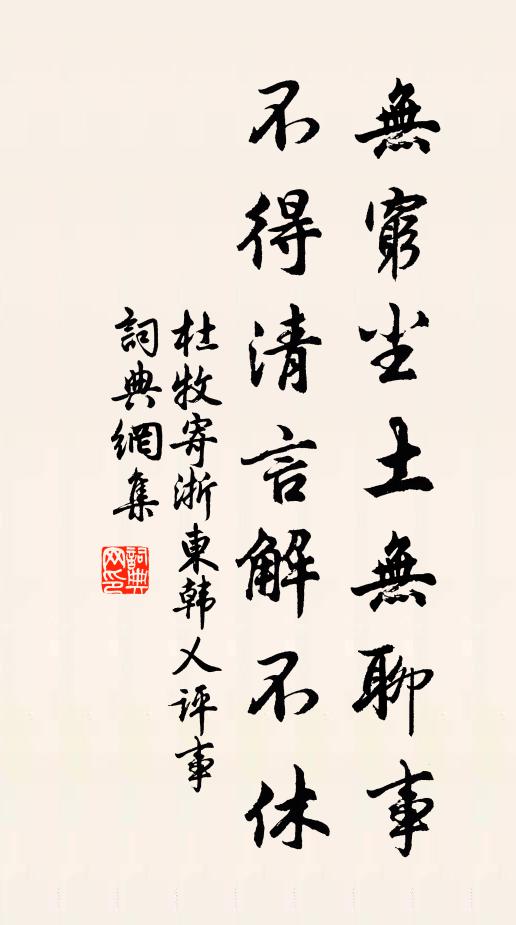 無窮尘土無聊事
不得清言解不休
杜牧寄浙東韩乂评事
詞典網集
詞典网印